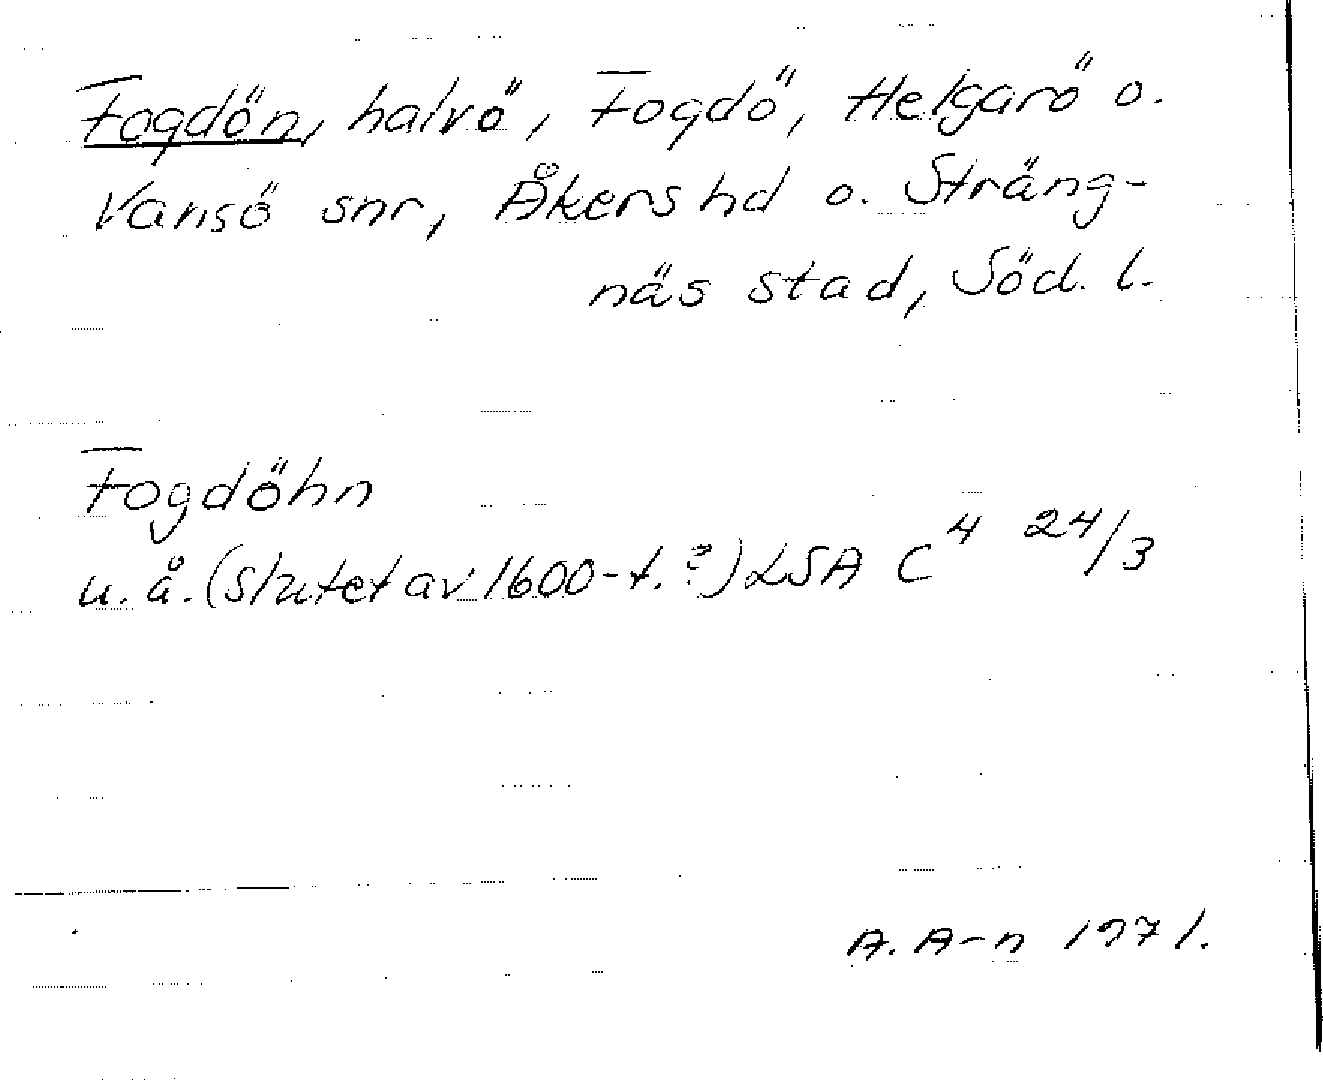 Fogdön, halvö, Fogdö, Helgarö o.
Vansö snr, Åkers hd o. Sträng-
näs stad, Söd. l.
Fogdöhn
u. å. (slutet av 1600-t. ?) LSA C⁴ 24/3
A. A-n 1971.